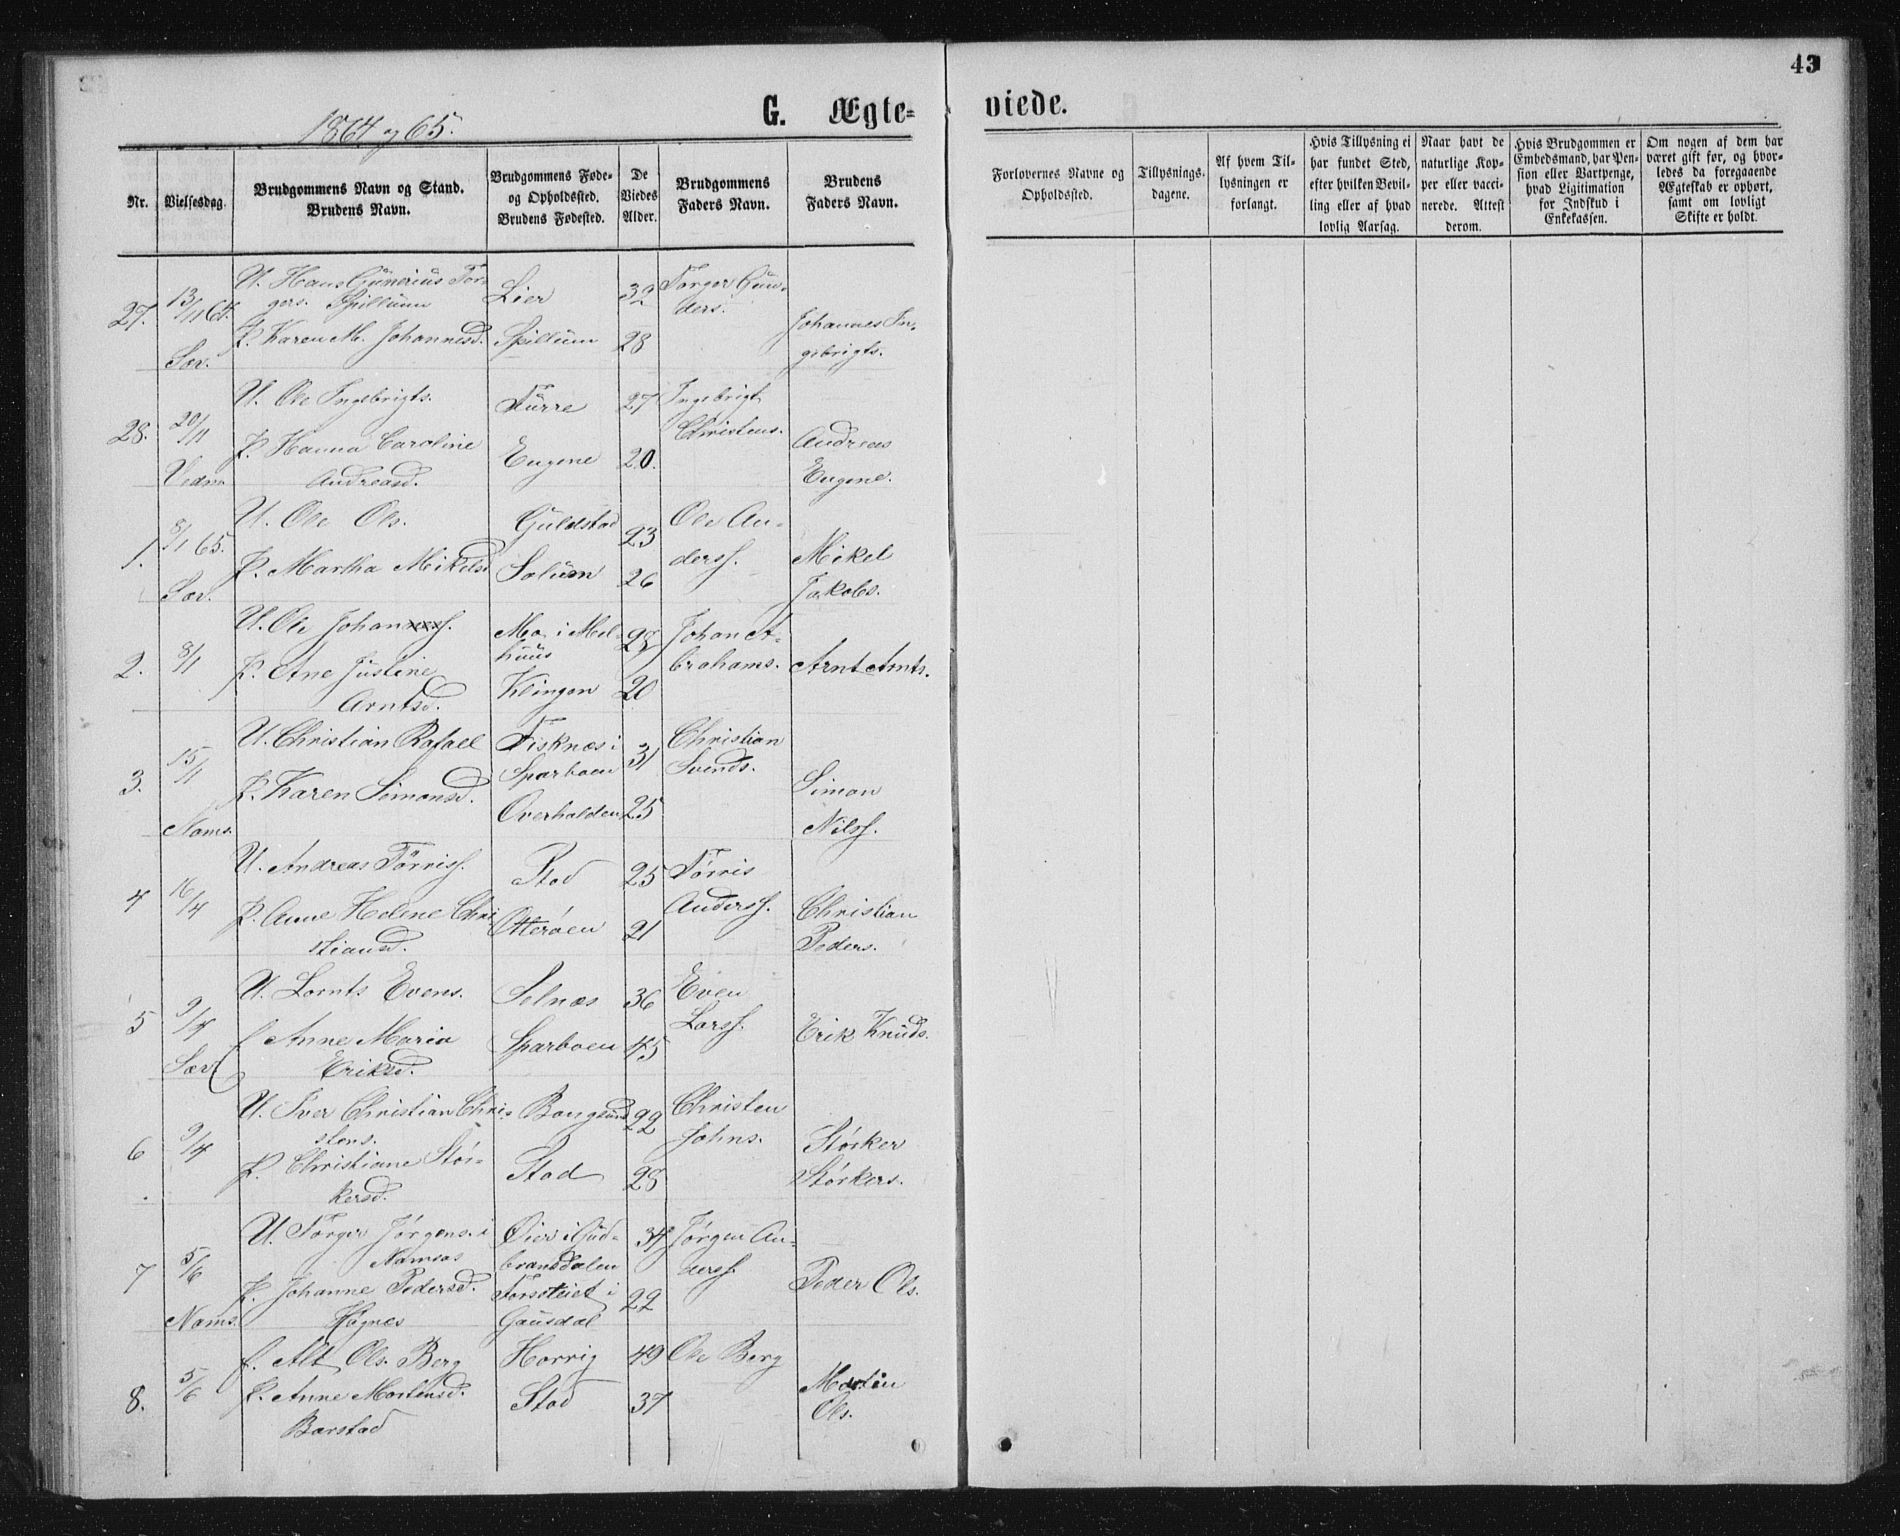 43
1864 og 65.
G. Ægte-
viede.
Nr.
Vielsesdag.
Brudgommens Navn og Stand.
Brudens Navn.
Brudgommens Føde-
og Opholdssted.
Brudens Fødested.
De
Viedes
Alder.
Brudgommens
Faders Navn.
Brudens
Faders Navn.
Forlovernes Navne og
Opholdssted.
Tillysnings-
dagene.
Af hvem Til-
lysningen er
forlangt.
Hvis Tillysning ei
har fundet Sted,
efter hvilken Bevil-
ling eller af hvad
lovlig Aarsag.
Naar havt de
naturlige Kop-
per eller vacci-
nerede. Attest
derom.
Hvis Brudgommen er
Embedsmand, har Pen-
sion eller Vartpenge,
hvad Ligitimation
for Indskud i
Enkekassen.
Om nogen af dem har
været gift før, og hvor-
ledes da foregaaende
Ægteskab er ophørt,
samt om lovligt
Skifte er holdt.
27.
13/11 64.
Sær.
U. Hans Gunerius Tor-
gers. Spillum
P. Karen M. Johannesd.
Lier
Spillum
32
28
Torger Gun-
ders.
Johannes In-
gebrigts.
28.
20/11
Vedm
U. Ole Ingebrigts.
P. Hanna Caroline
Andreasd.
Furre
Eugene
27
20.
Ingebrigt
Christens.
Andreas
Eugene.
1.
8/1 65.
Sær.
U. Ole Ols.
P. Martha Mikelsd
Guldstad
Solum
23
26
Ole An-
derss.
Mikel
Jakobs.
2.
8/1
U. Ole Johans.
P. Ane Justine
Arntsd.
Mo i Mel-
huus
Klingen
28
20
Johan A-
brahams.
Arnt Arnts.
3.
15/1
Nams.
U. Christian Rafael
P. Karen Simonsd.
Fisknes i
Sparboen
Overhalden
31
25
Christian
Svends.
Simon
Nilss.
4
16/4
U. Andreas Tørriss.
P. Anne Helene Chri
stiansd.
Stod
Otterøen
25
21
Tørris
Anderss.
Christian
Peders.
5
9/4
Sær
U. Lornts Evens.
f Anne Maria
Eriksd.
Selnæs
Sparboen
36
45
Even
Larss.
Erik Knuds.
6
9/4
U. Iver Christian Chri-
stens.
P. Christiane Stør-
kersd.
Bangsund
Stod
22
28
Christen
Johns.
Størker
Størkers.
7
5/6
Nams.
U. Torger Jørgens. i
Namsos
P. Johanne Pedersd.
Høgnes
Øier i Gud-
brandsdalen
i
Gausdal
34
22
Jørgen An-
derss.
Peder Ols.
8.
5/6
f. Alt Ols. Berg
P. Anne Mortensd.
Barstad
Horrig
Stod
49
37
Ole Berg
Ols.